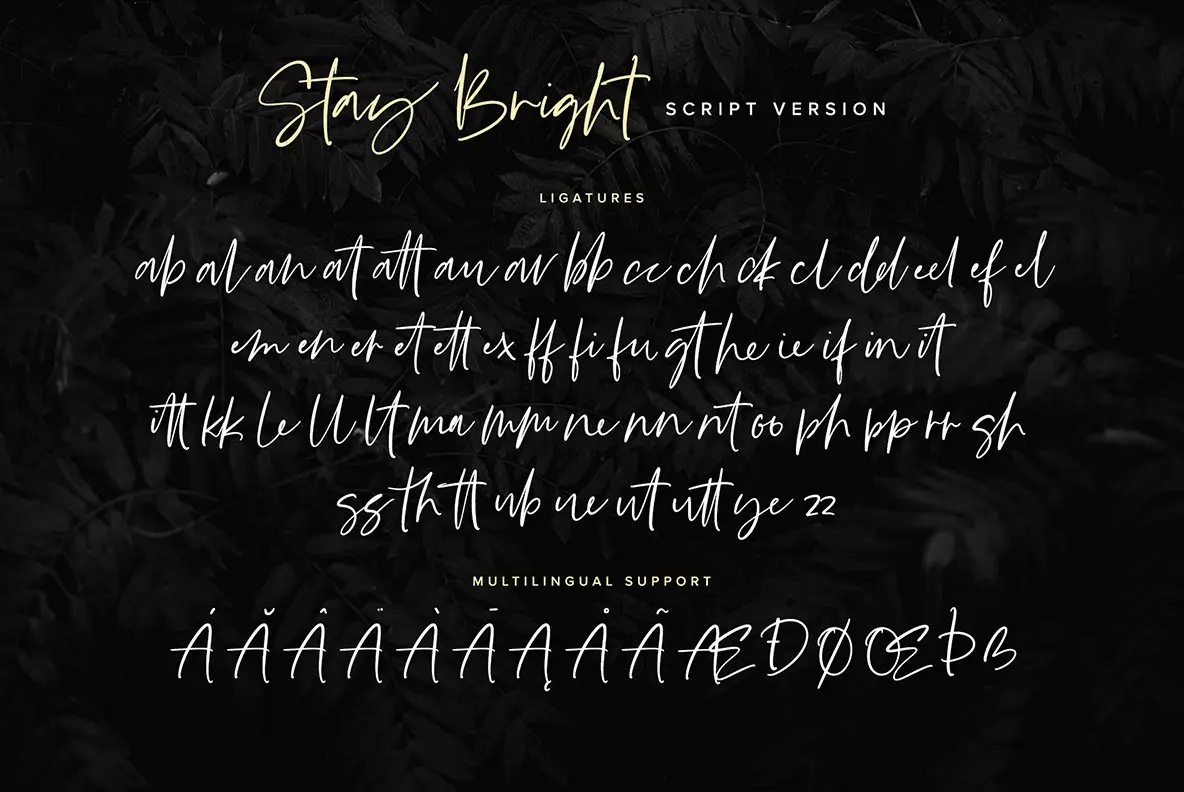 Stay Bright SCRIPT VERSION
LIGATURES
ab al an at att au av bb cc ch ck cl dd eel ef el
em en er et ett ex ff fi fu gt he ie if in it
itt kk le ll lt ma mm ne nn nt oo ph pp rr sh
ss th tt ub ue ut utt ye zz
MULTILINGUAL SUPPORT
Á Ă Â Ä À Ā Ą Å Ã Æ Đ Ø Œ Þ ß